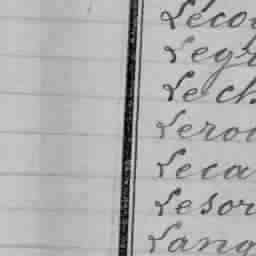 Lécou
Legr
Lech
Lerou
Leca
Lesor
Lang